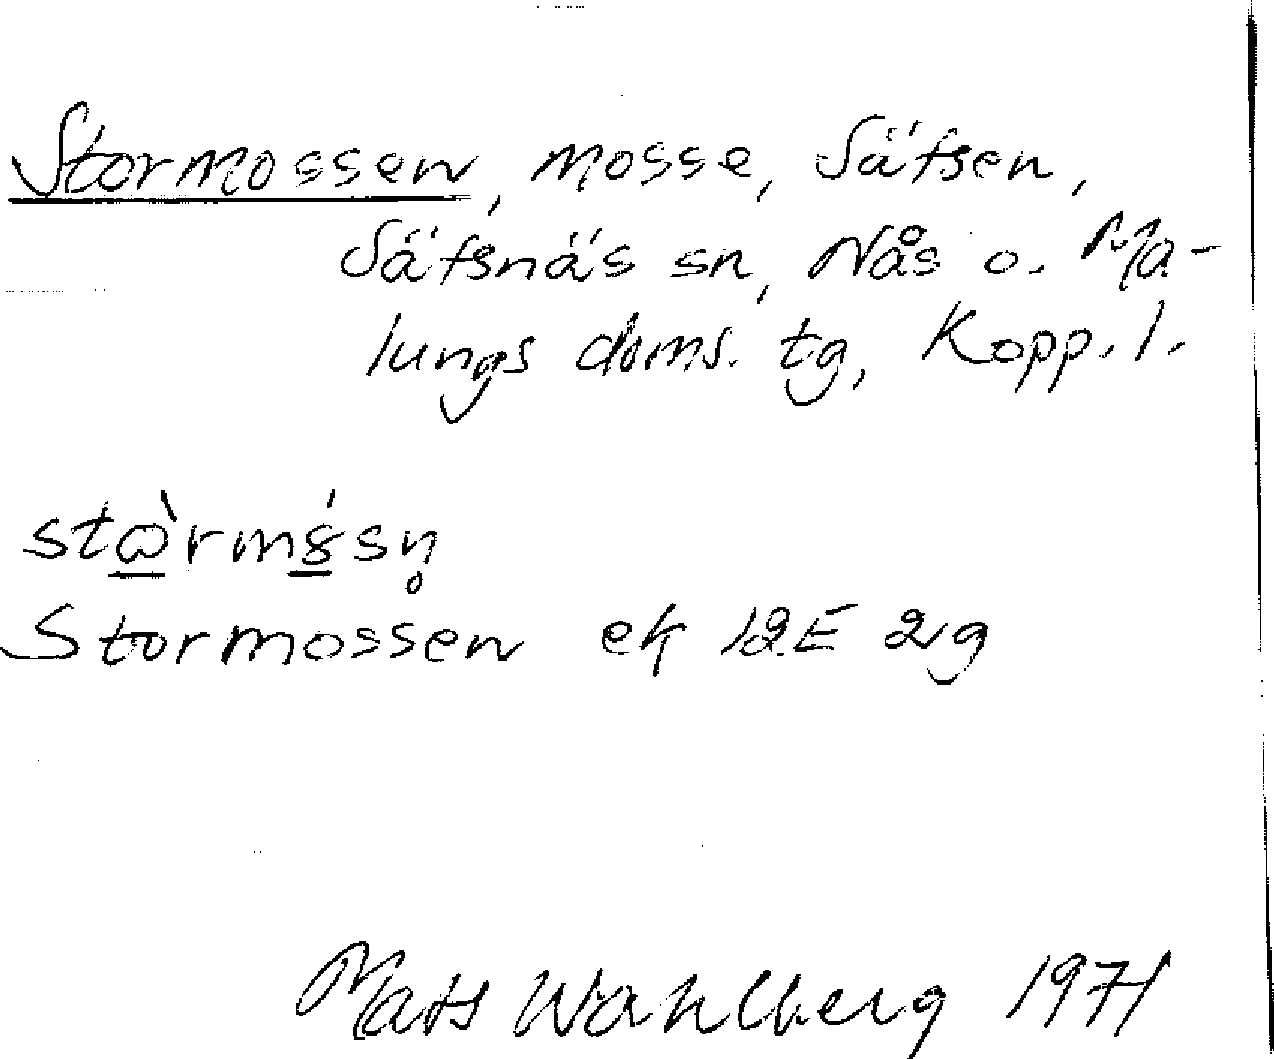 Stormossen, mosse, Säfsen,
Säfsnäs sn, Nås o. Ma-
lungs doms. tg, Kopp. l.
Stormossen ek 12E 2g
Mats Wahlberg 1971